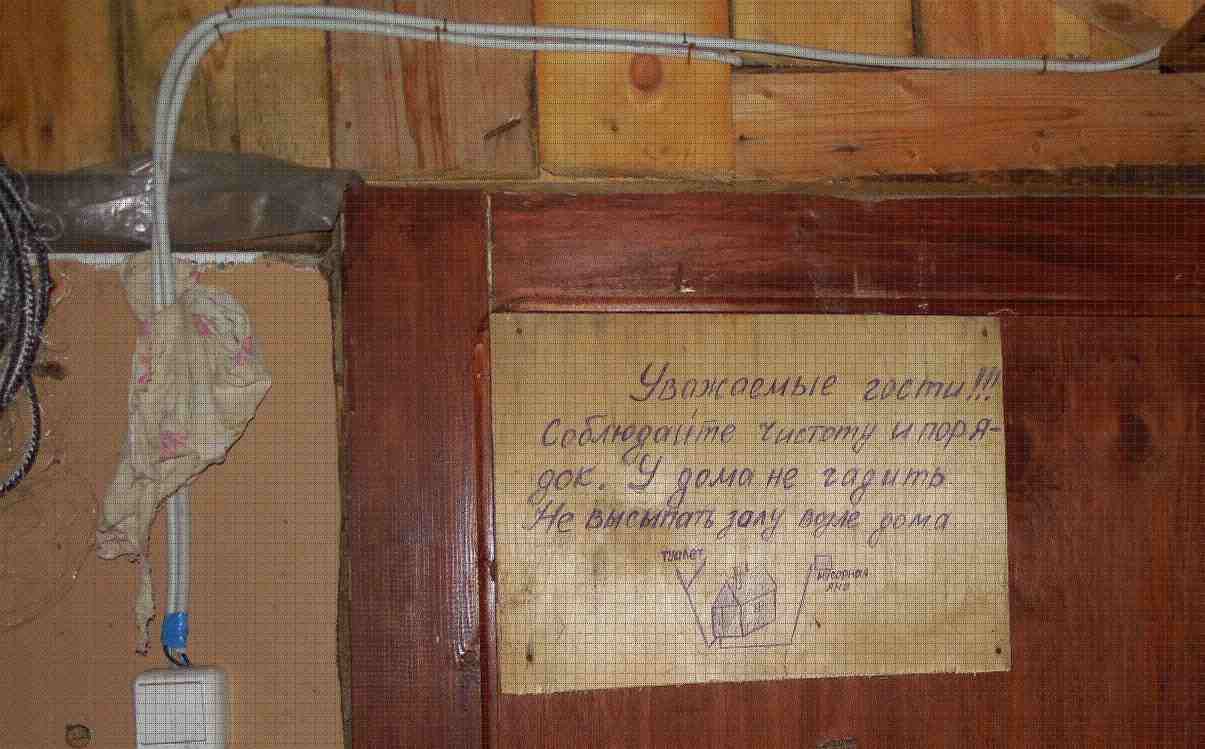 Уважаемые гости!!!
Соблюдайте чистоту и поря-
док. У дома не гадить
Не высыпать залу возле дома
туалет
мусорная
яма